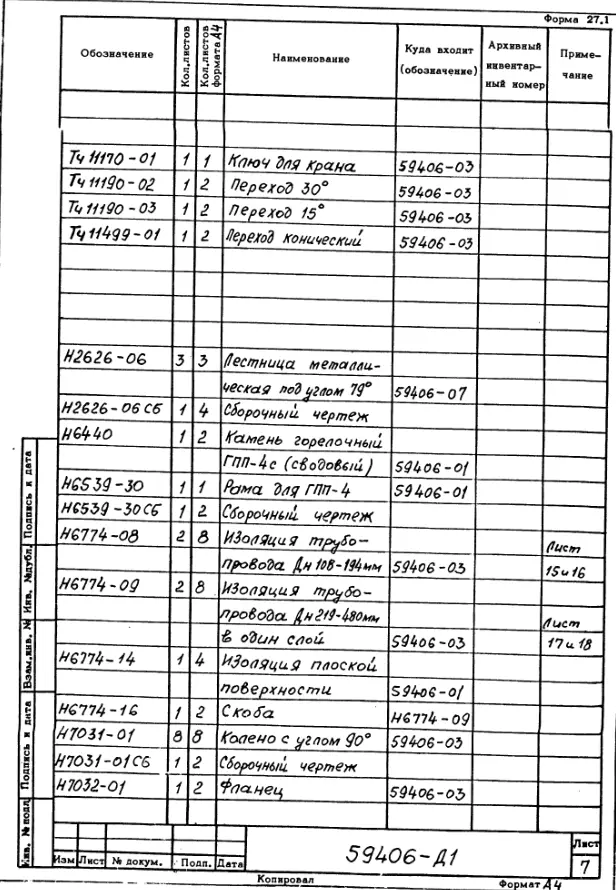 Форма 27.1
Обозначение Кол.листов Кол.листов формата А4 Наименование Куда входит (обозначение) Архивный инвентар- ный номер Приме- чание
Тч 11170-01 1 1 Ключ для крана 59406-03
Тч 11190-02 1 2 Переход 30° 59406-03
Тч 11190-03 1 2 Переход 15° 59406-03
Тч 11499-01 1 2 Переход конический 59406-03
Н2626-06 3 3 Лестница металли-
ческая под углом 79° 59406-07
Н2626-06 Сб 1 4 Сборочный чертеж
Н6440 1 2 Камень горелочный
ГПП-4с (сводовый) 59406-01
Н6539-30 1 1 Рама для ГПП-4 59406-01
Н6539-30 Сб 1 2 Сборочный чертеж
Н6774-08 2 8 Изоляция трубо- Лист
провода Дн 108-194мм 59406-03 15и16
Н6774-09 2 8 Изоляция трубо-
провода Дн219-480мм Лист
в один слой 59406-03 17и18
Н6774-14 1 4 Изоляция плоской
поверхности 59406-01
Н6774-16 1 2 Скоба Н6774-09
Н7031-01 8 8 Колено с углом 90° 59406-03
Н7031-01 Сб 1 2 Сборочный чертеж
Н7032-01 1 2 Фланец 59406-03
Инв. № подл Подпись и дата Взам.инв. № Инв. №дубл. Подпись и дата
59406-Д1 Лист
7
Изм Лист № докум. Подп. Дата
Копировал Формат А4